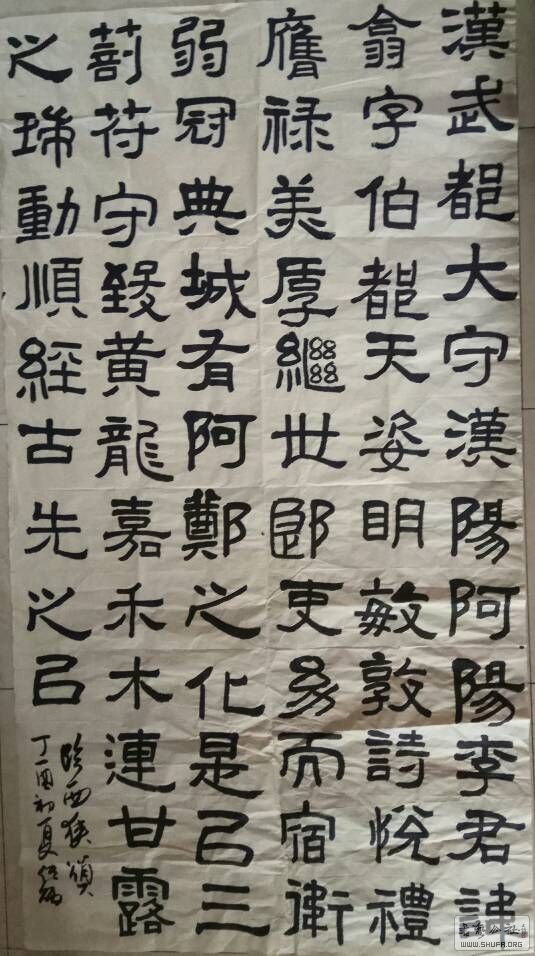 漢武都大守漢陽阿陽李君諱
翕字伯都天姿明敏敦詩悅禮
膺禄美厚繼世郎吏幼而宿衛
弱冠典城有阿鄭之化是以三
剖苻守致黄龍嘉禾木連甘露
之瑞動順經古先之以
臨西狹頌
丁酉初夏
WWW.SHUFA.ORG